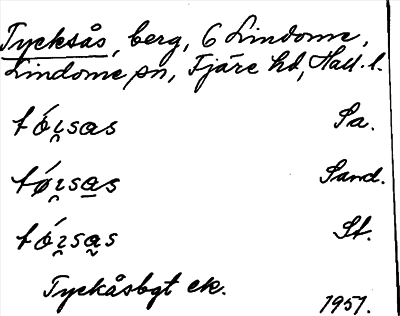 Tycksås, berg, 6 Lindome,
Lindome sn, Fjäre hd, Hall. l.
tǿı̯sas Sa.
tǿı̯sa̱s Sand.
tǿı̰sa̰s St.
Tyckåsbgt ek.
1951.